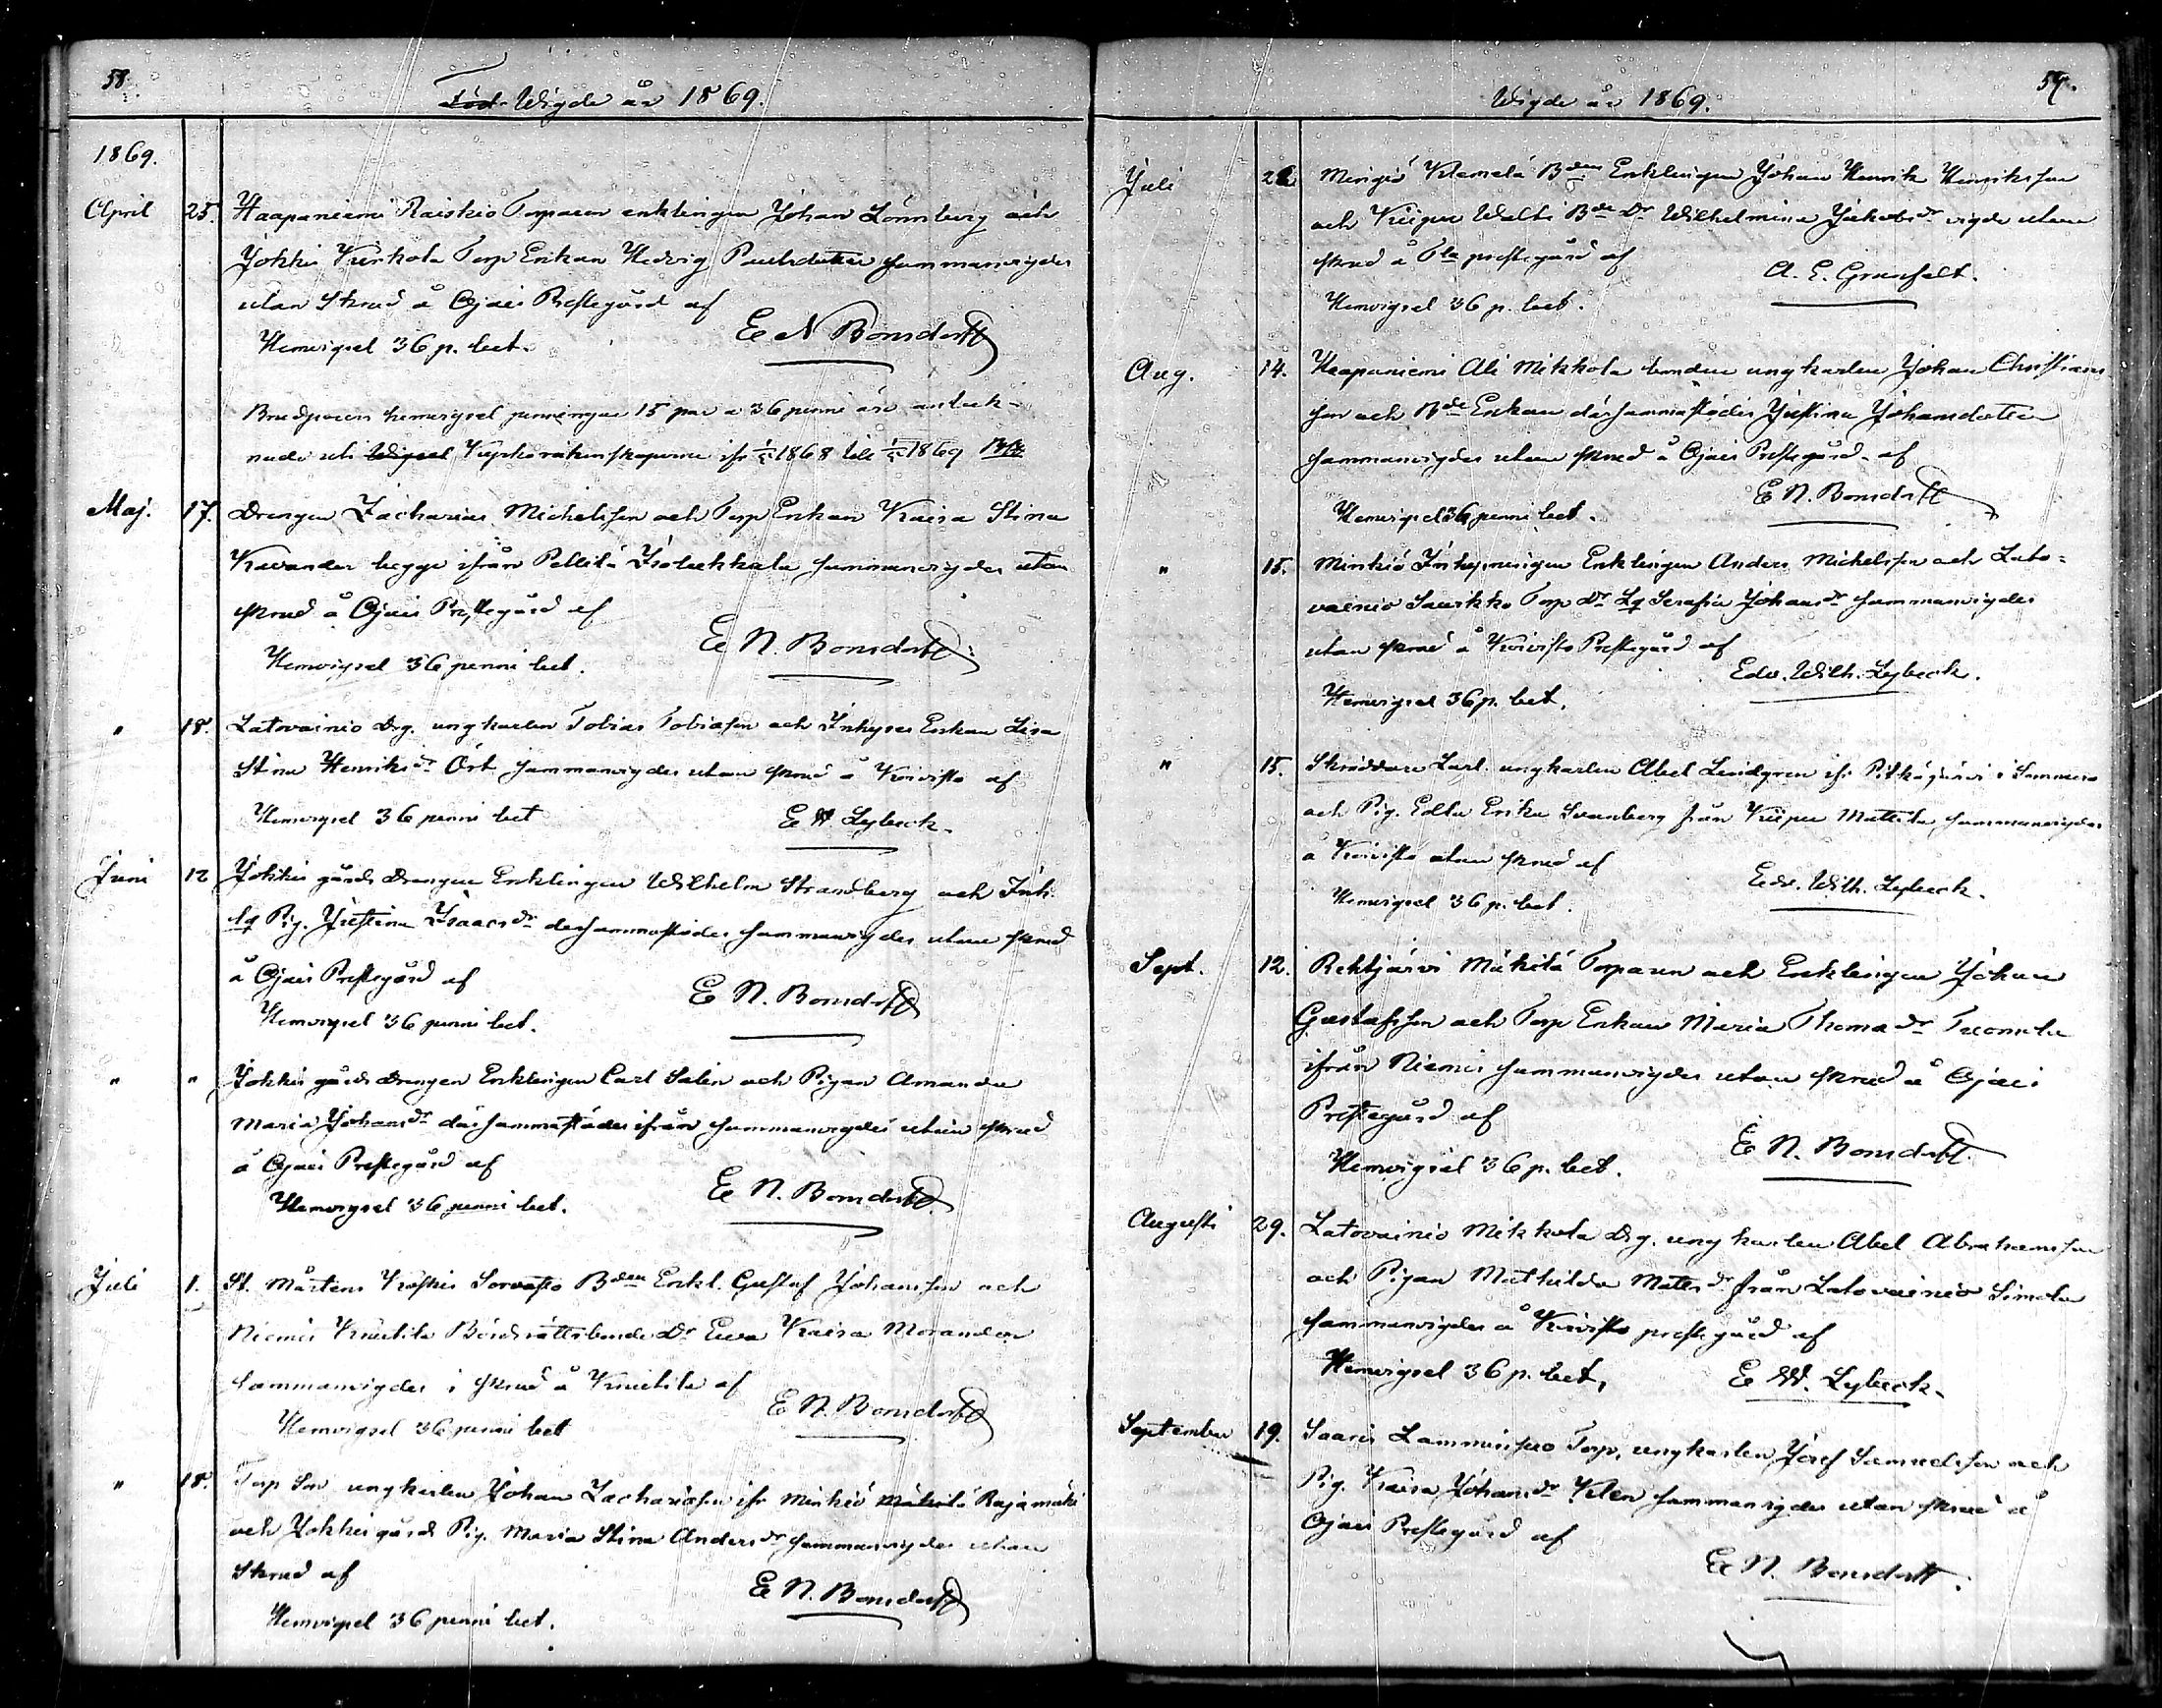 58.
Wigde år 1869.
1869.
April 25. Haapaniemi Raiskio Torparen enklingen Johan Lönnberg och
Jokkis Kurkola Torp Enkan Hedvig Paulsdotter sammanvigdes
utan skrud å Ojais Prestegård af
Hemvigsel 36 p. bet. E N Bonsdorff
Brudparens hemvigsel penningar 15 par a 36 penni äro anteck-
nade uti Wigsel Kyrkoräkenskaperna ifr 1868 till 1869
Maj. 17. Drengen Zacharias Michelsson och Torp Enkan Kaisa Stina
begge ifrån Pellilä sammanvigdes utan
skrud å Ojais Prestegård af
Hemvigsel 36 penni bet. E N. Bonsdorff
" 18. Latovainio Drg. ungkarlen Tobias Tobiasson och Inhyses Enkan Lisa
Stina Henriksdr Öst sammanvigdes utan skrud å Koivisto af
Hemvigsel 36 penni bet E W. Lybeck.
Juni 12 Jokkis gårds Drengen Enklingen Wilhelm Strandberg och Inh.
Pig. Justina Isaacsdr dersammastädes sammanvigdes utan skrud
å Ojais Prestegård af
Hemvigsel 36 penni bet. E N. Bonsdorff
" " Jokkis gårds drengen Enklingen Carl Salin och Pigan Amanda
Maria Johansdr därsammastädes ifrån sammanvigdes utan skrud
å Ojais Prestegård af
Hemvigsel 36 penni bet. E N. Bonsdorff
Juli 1. St. Mårtens Koskis Sorvasto Bden Enkl. Gustaf Johansson och
Niemis Knuutila Bördsrättsbonde Dr Eva Kaisa Morander
sammanvigdes i skrud å Knuutila af
Hemvigsel 36 penni bet E N. Bonsdorff
" 18. Torp Son ungkarlen Johan Zachariasson ifr Minkiö Mäkilä Rajamäki
och Jokkis gårds Pig. Maria Stina Andersdr sammanvigdes utan
skrud af
Hemvigsel 36 penni bet. E N. Bonsdorff
59.
Wigde år 1869.
Juli Klemelä Bden Enklingen Johan Henrik Henriksson
och Kiipu Bde Dr Wilhelmina Jakobsdr vigde utan
skrud å Tla prestegård af
Hemvigsel 36 p. bet. A. E. Granfelt.
Aug. 14. Haapaniemi Ali Mikkola bonden ungkarlen Johan Christians-
son och Bde Enkan därsammastädes Justina Johansdotter
sammanvigdes utan skrud å Ojais Prestegård af
Hemvigsel 36 penni bet. E N. Bonsdorff
" 15. Minkiö Inhysningen Enklingen Anders Michelsson och Lato-
vainio Saurikko Torp Dr Serafia Johansdr sammanvigdes
utan skrud å Koivisto Prestegård af
Hemvigsel 36 p. bet. Edv. Wilh. Lybeck.
" 15. Skräddare Lärl. ungkarlen Abel Lindgren ifr Pitkäjärvi i Sommero
och Pig. Edla Erika Svanberg från Kiipu Mattila sammanvigdes
å Koivisto utan skrud af
Hemvigsel 36 p. bet. Edv. Wilh. Lybeck.
Sept. 12. Rehtjärvi Mäkilä Torparen och Enklingen Johan
Gustafsson och Torp Enkan Maria Thomadr Tuomola
ifrån Niemis sammanvigdes utan skrud å Ojais
Prestegård af
Hemvigsel 36 p. bet. E N. Bonsdorff
Augusti 29. Latovainio Mikkola Drg. ungkarlen Abel Abrahamsson
och Pigan Mathilda Mattsdr från Latovainio Simola
sammanvigdes å Koivisto prestegård af
Hemvigsel 36 p. bet. E W. Lybeck.
September 19. Saaris Torp. ungkarlen Josef Samuelsson och
Pig. Kaisa Johansdr Klen sammanvigdes utan skrud å
Ojais Prestegård af
E N. Bonsdorff.